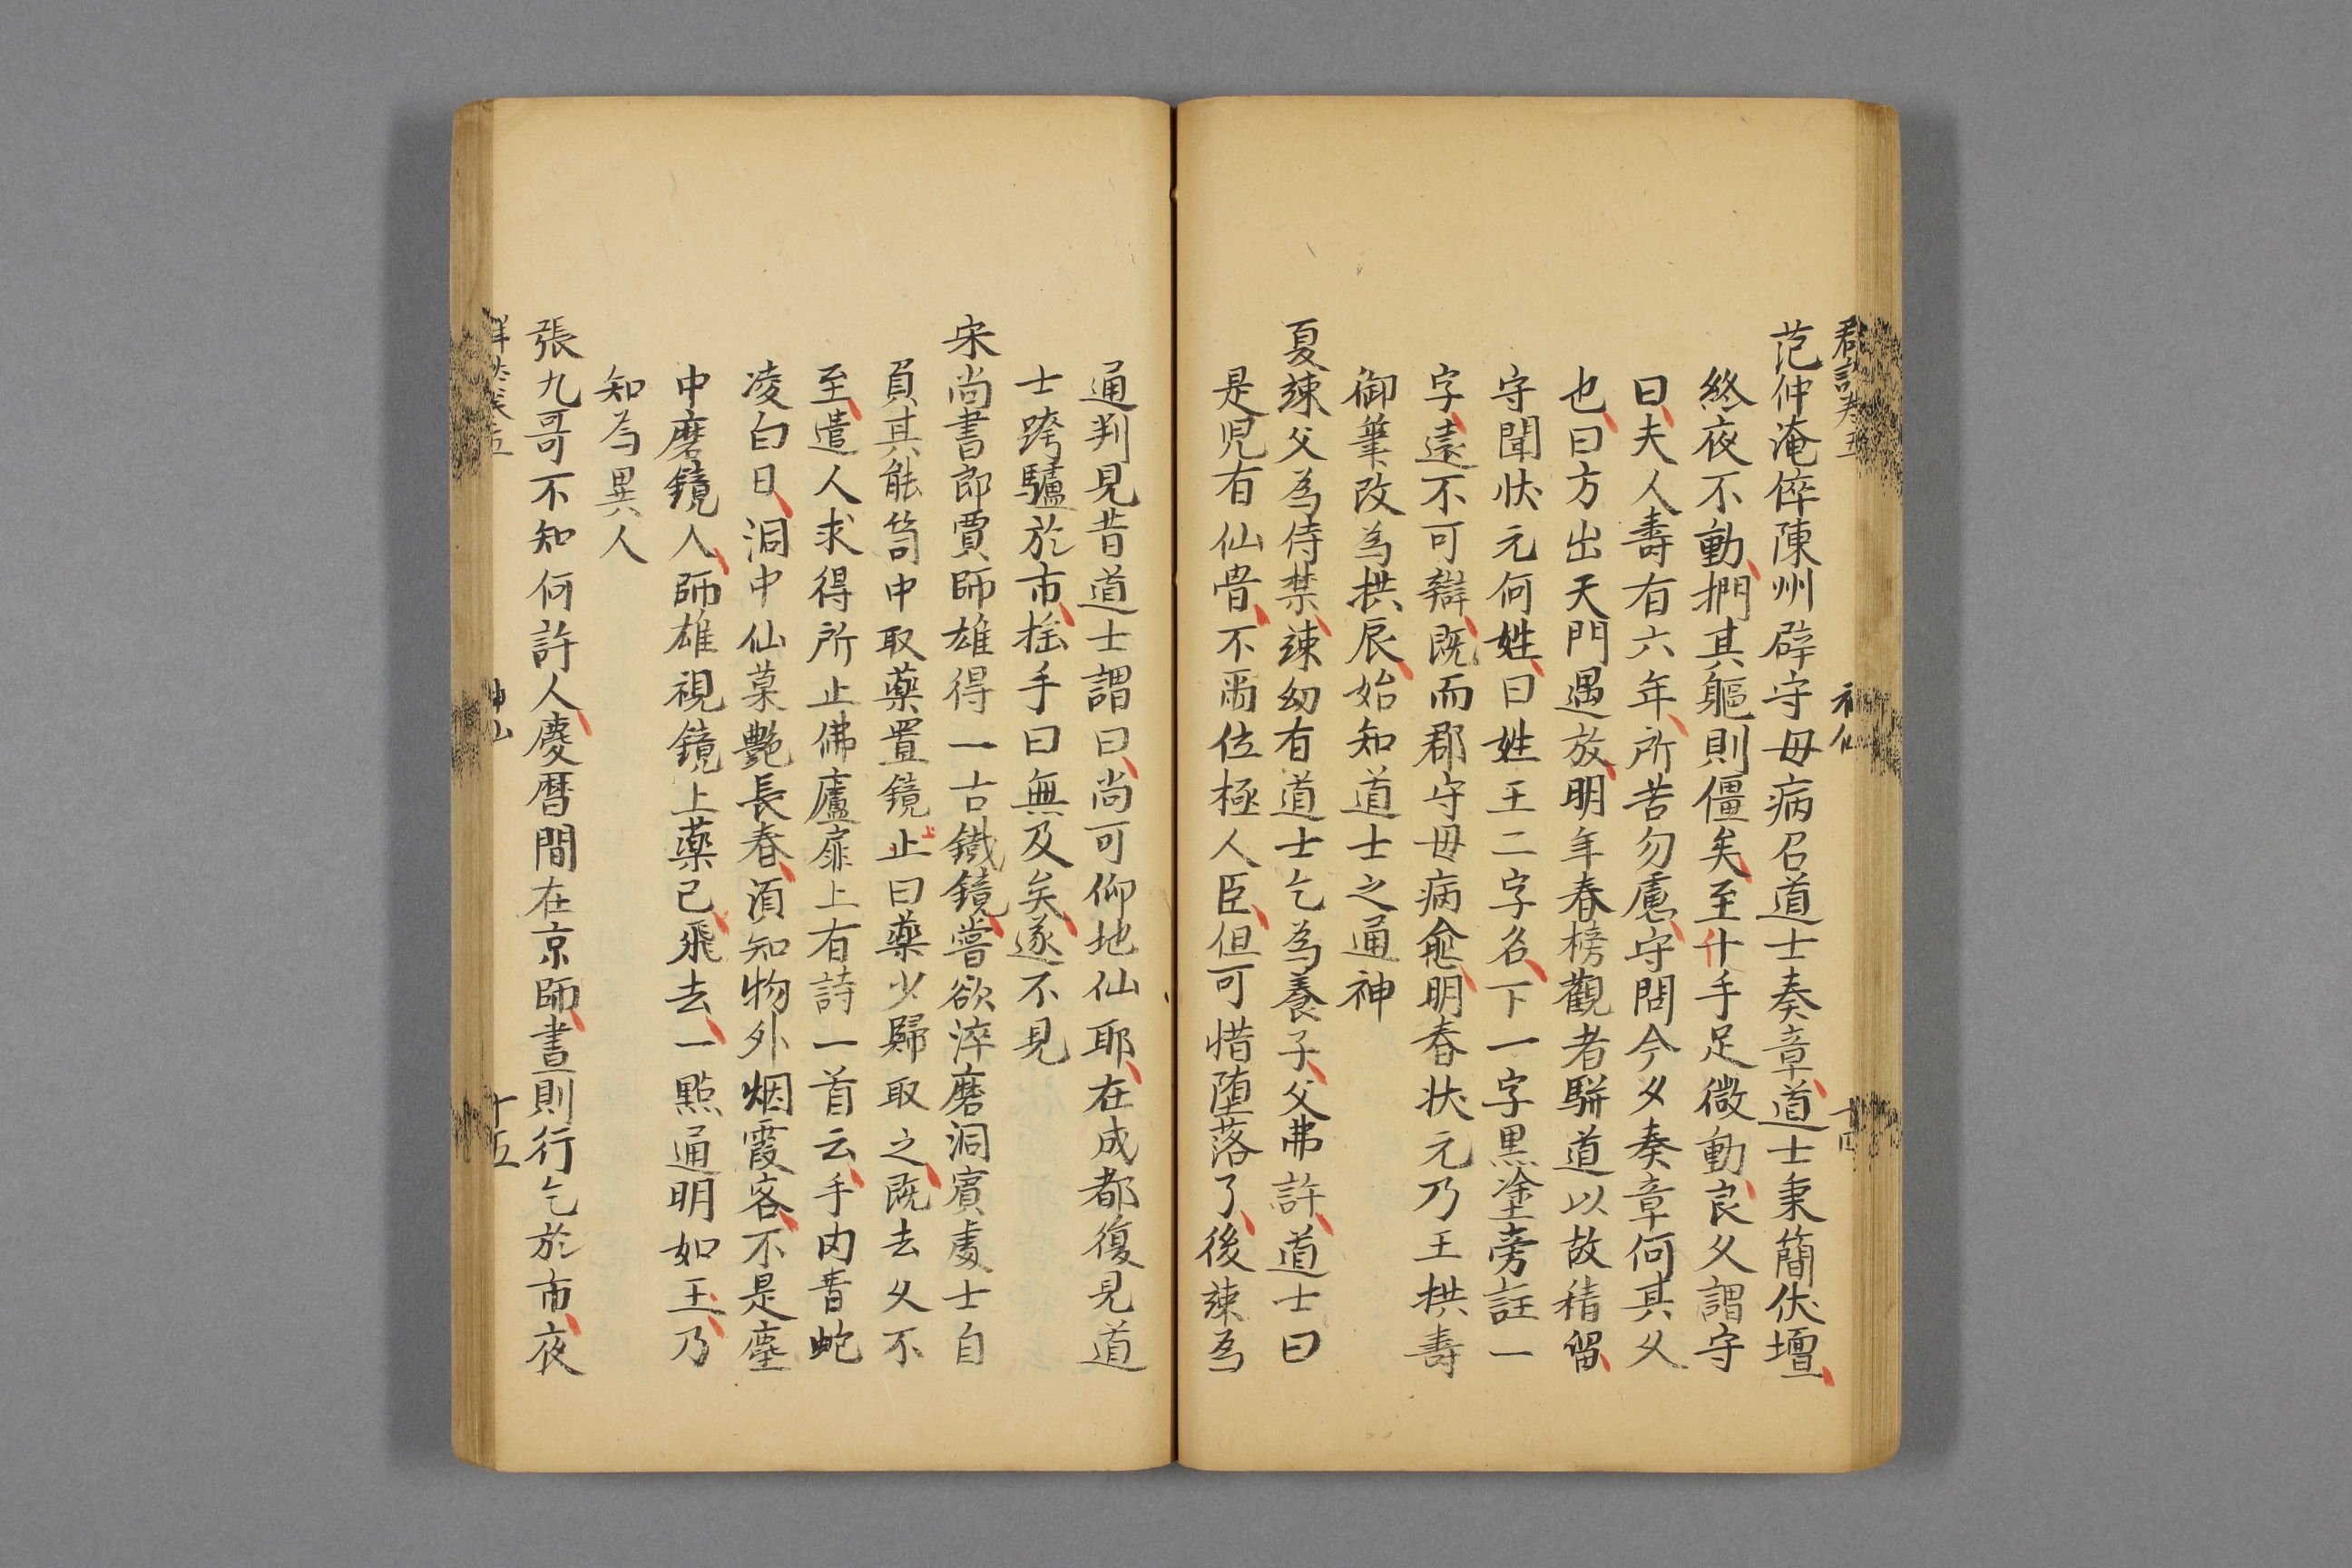 范仲淹倅陳州辟守母病召道士奏章道士秉簡伏壇
終夜不動捫其軀則僵矣至什手足微動良久謂守
曰夫人壽有六年所苦勿慮守問今夕奏章何其久
也曰方出天門遇放明年春榜觀者駢道以故稽留
守聞状元何姓曰姓王二字名下一字黒塗旁註一
字遠不可辯既而郡守母病愈明春状元乃王拱壽
御筆改為拱辰始知道士之通神
夏竦父為侍禁竦幼有道士乞為養子父弗許道士曰
是児有仙骨不尓位極人臣但可惜堕落了後竦為
通判見昔道士謂曰尚可仰地仙耶在成都復見道
士跨驢於市揺手曰無及矣遂不見
宋尚書郎賈師雄得一古鐵鏡嘗欲淬磨洞賓處士自
負其能笥中取藥置鏡止曰藥少歸取之既去久不
至遣人求得所止佛廬扉上有詩一首云手内青蛇
凌白日洞中仙菓艶長春湏知物外烟霞客不是塵
中磨鏡人師雄視鏡上藥已飛去一點通明如玉乃
知為異人
張九哥不知何許人慶曆間在京師晝則行乞於市夜
十五